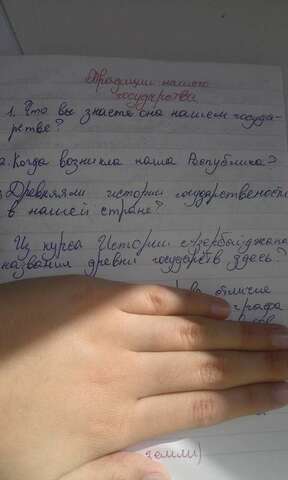 Традиции нашего
государства
1. Что вы знаете о нашем госуда-
рстве?
2. Когда возникла наша Республика?
Древняя ли история государствености
в нашей стране?
Из курса Истории Азербайджана
названия древни государств здесь?
в отличие
графа
земли)